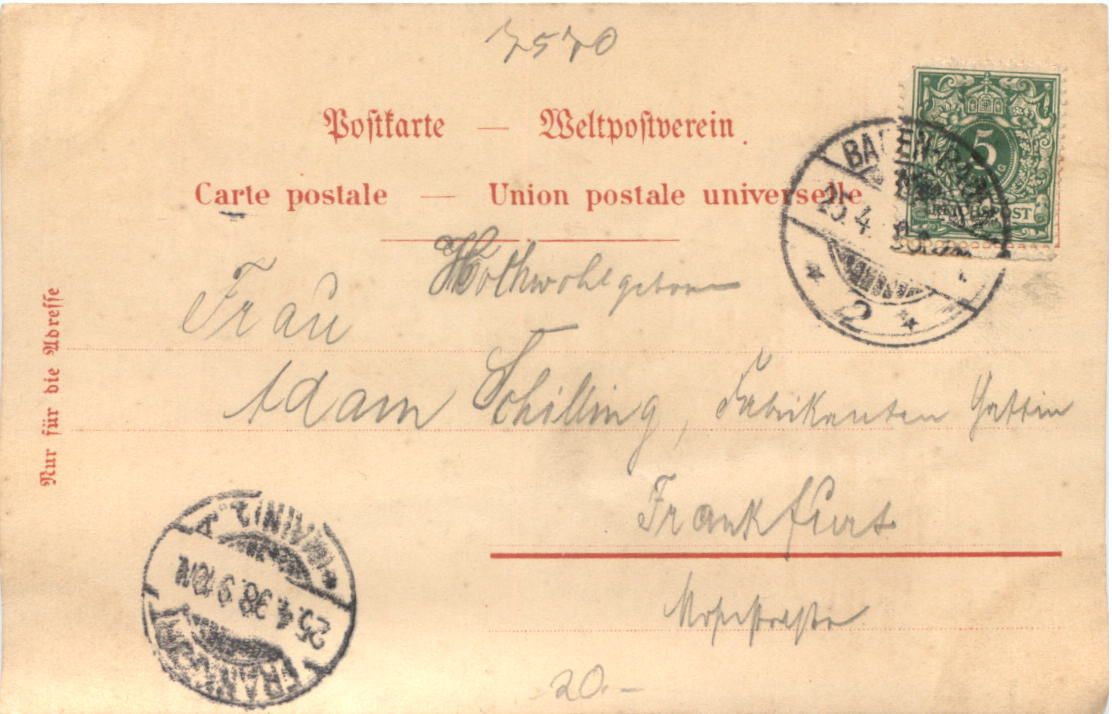 7570
Postkarte — Weltpostverein
Carte postale — Union postale universelle
5
REICHSPOST
BADEN-BADEN
25.4.
* 2 *
Hochwohlgeboren
Frau
Adam Schilling, Fabrikanten Gattin
Frankfurt
Nur für die Adresse
FRANKFURT
(MAIN) 1.
25.4.98.9-10N
20.-